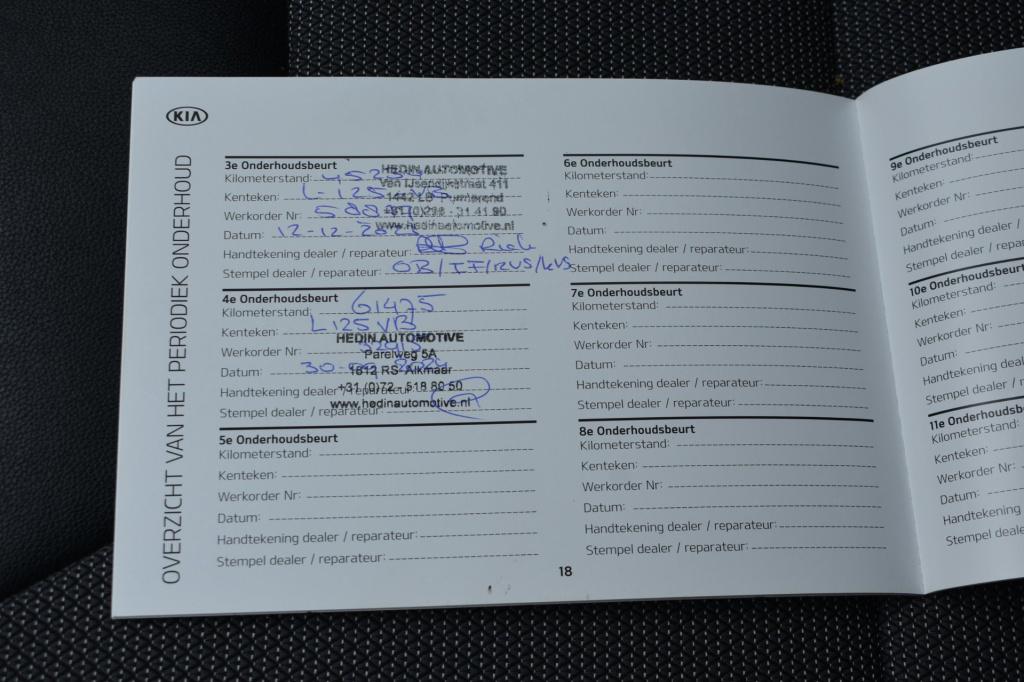 KIA
OVERZICHT VAN HET PERIODIEK ONDERHOUD
3e Onderhoudsbeurt
Kilometerstand:
Kenteken: L-125-VB
Werkorder Nr:
Datum: 12-12-
Handtekening dealer / reparateur: Rick
Stempel dealer / reparateur: OB/IF/RVS/KVS
HEDIN AUTOMOTIVE
Van IJsendijkstraat 411
1442 LB Purmerend
www.hedinautomotive.nl
4e Onderhoudsbeurt
Kilometerstand: 61475
Kenteken: L125VB
Werkorder Nr:
Datum: 30-
Handtekening dealer / reparateur:
Stempel dealer / reparateur:
HEDIN AUTOMOTIVE
Parelweg 5A
1812 RS Alkmaar
+31 (0)72 - 518 80 50
www.hedinautomotive.nl
5e Onderhoudsbeurt
Kilometerstand:
Kenteken:
Werkorder Nr:
Datum:
Handtekening dealer / reparateur:
Stempel dealer / reparateur:
6e Onderhoudsbeurt
Kilometerstand:
Kenteken:
Werkorder Nr:
Datum:
Handtekening dealer / reparateur:
Stempel dealer / reparateur:
7e Onderhoudsbeurt
Kilometerstand:
Kenteken:
Werkorder Nr:
Datum:
Handtekening dealer / reparateur:
Stempel dealer / reparateur:
8e Onderhoudsbeurt
Kilometerstand:
Kenteken:
Werkorder Nr:
Datum:
Handtekening dealer / reparateur:
Stempel dealer / reparateur:
18
9e Onderhoudsbeurt
Kilometerstand:
Kenteken:
Werkorder Nr:
Datum:
Handtekening dealer /
Stempel dealer / repa
10e Onderhoudsbeurt
Kilometerstand:
Kenteken:
Werkorder Nr:
Datum:
Handtekening deal
Stempel dealer / r
11e Onderhoudsb
Kilometerstand:
Kenteken:
Werkorder Nr:
Datum:
Handtekening
Stempel deale